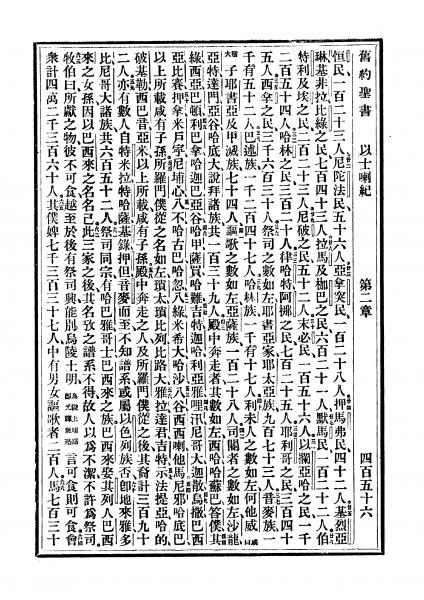 舊約聖書 以士喇紀 第二章 四百五十六
恒民一百二十三人尼陀法民五十六人亞拿突民一百二十八人押馬弗民四十二人基烈亞
琳基非拉比綠之民七百四十三人拉馬及枷巴之民六百二十一人默馬民一百二十二人伯
特利及埃之民二百二十三人尼破之民五十二人末必民一百五十六人以攔亞哈之民一千
二百五十四人哈林之民三百二十人律哈特阿挪之民七百二十五人耶利哥之民三百四十
五人西拿之民三千六百三十人祭司之數如左耶書亞家耶太亞族九百七十三人音麥族一
千有五十二人巴述族一千二百四十七人哈林族一千有十七人利未人之數如左何他威
子耶書亞及甲滅族七十四人謳歌之數如左亞薩族一百二十八人司閽者之數如左沙龍
亞特達門亞谷哈底大說拜諸族共一百三十九人殿中奔走者其數如左西哈哈蘇巴答俄其
綠西亞巴頓利巴拿哈迦巴亞谷哈甲薩買哈雖吉特迦哈利亞雅哩汛尼哥大迦散烏撒巴西
亞比賽押拿米烏寧尼埔心八不哈古巴哈忽八綠米希大哈沙八谷西西喇他馬尼邪哈底巴
以上所載咸有子孫所羅門僕從之名如左瑣太瑣比列比路大雅拉達君吉特示法提亞哈的
破基勒西巴音亞米以上所載咸有子孫殿中奔走之人及所羅門僕從之後裔計三百九十
二人亦有數人自特米拉特哈薩基錄押但音麥而至不知譜系或屬以色列族否卽地來雅多
比尼哥大諸族共六百五十二人祭司同宗有哈巴雅哥士巴西來之族巴西來娶其列人巴西
來之女孫因以巴西來之名名己此三家之後其名攷之譜系不得故人以為不潔不許為祭司
牧伯曰所獻之物彼不可食越至於後有祭司興能別烏陵土明言可食則可食會
衆計四萬二千三百六十人其僕婢七千三百三十七人中有男女謳歌者二百人馬七百三十